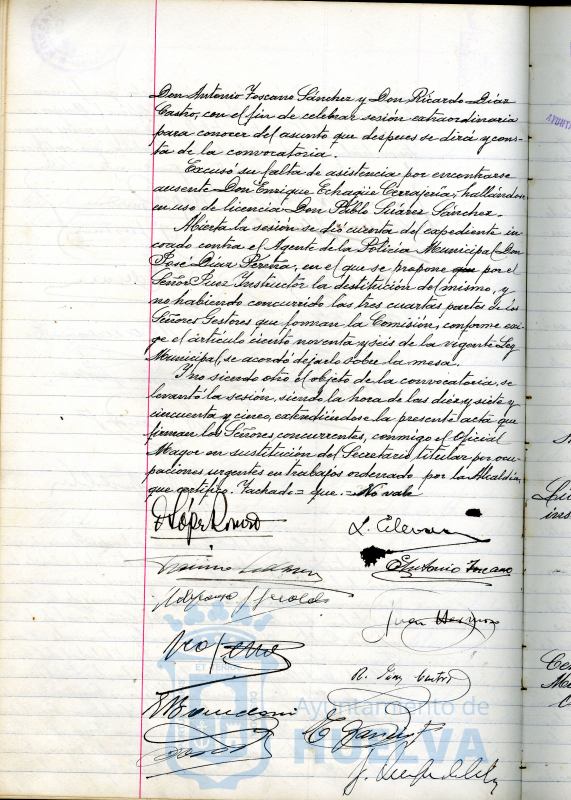 Don Antonio Toscano Sánchez y Don Ricardo Díaz
Castro, con el fin de celebrar sesión extraordinaria
para conocer del asunto que despues se dirá y cons-
ta de la convocatoria.
Excusó su falta de asistencia por encontrarse
ausente Don Enrique Echagüe Cerrajería, hallándose
en uso de licencia Don Pablo Suárez Sánchez.
Abierta la sesión se dió cuenta del expediente in
coado contra el Agente de la Policia Municipal Don
José Díaz Pereña, en el que se propone que por el
Señor Juez Instructor la destitución del mismo, y
no habiendo concurrido las tres cuartas partes de los
Señores Gestores que forman la Comisión, conforme exi-
ge el artículo ciento noventa y seis de la vigente Ley
Municipal, se acordó dejarlo sobre la mesa.
Y no siendo otro el objeto de la convocatoria, se
levantó la sesión, siendo la hora de las diez y siete y
cincuenta y cinco, extendiéndose la presente acta que
firman los Señores concurrentes, conmigo el Oficial
Mayor en sustitución del Secretario titular por ocu-
paciones urgentes en trabajos ordenado por la Alcaldía,
que certifico. Tachado = que. = No vale
López Romero
Antonio Toscano
Juan
R. Díaz Castro
Ayuntamiento de
HUELVA